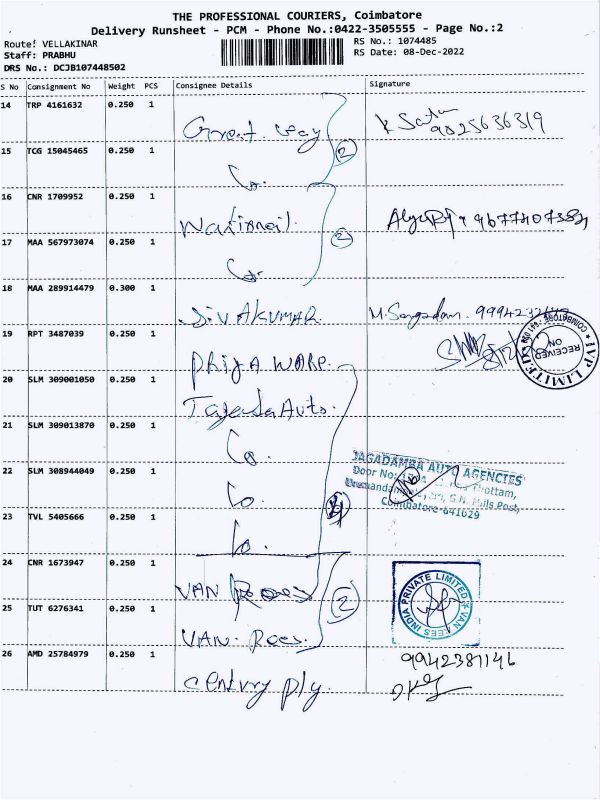 THE PROFESSIONAL COURIERS, Coimbatore
Delivery Runsheet - PCM - Phone No.:0422-3505555 - Page No.:2
Route: VELLAKINAR
Staff: PRABHU
DRS No.: DCJB107448502
RS No.: 1074485
RS Date: 08-Dec-2022
S No Consignment No Weight PCS Consignee Details Signature
14 TRP 4161632 0.250 1
Great way
9025636319
15 TCG 15045465 0.250 1
2
Co.
16 CNR 1709952 0.250 1
National.
17 MAA 567973074 0.250 1
2
Co.
18 MAA 289914479 0.300 1
SivAKUMAR.
19 RPT 3487039 0.250 1
RECEIVED
ON
COIMBATORE
LIMITED
20 SLM 309001050 0.250 1
Auto.
21 SLM 309013870 0.250 1
Co.
JAGADAMBA AUTO AGENCIES
Door No:
Thottam,
22 SLM 308944049 0.250 1
S.N. Mills Post,
Coimbatore-641029
Co.
23 TVL 5405666 0.250 1
Co.
24 CNR 1673947 0.250 1
VAN Rees
25 TUT 6276341 0.250 1
2
VAN REES INDIA PRIVATE LIMITED
VAN. Rees.
26 AMD 25784979 0.250 1
9942381146
Century ply.